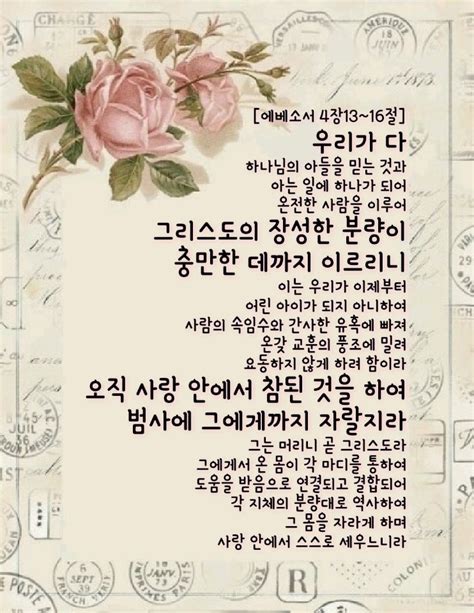 AMÉRIQUE
18
JUIN
[에베소서 4장13~16절]
우리가 다
하나님의 아들을 믿는 것과
아는 일에 하나가 되어
온전한 사람을 이루어
그리스도의 장성한 분량이
충만한 데까지 이르리니
이는 우리가 이제부터
어린 아이가 되지 아니하여
사람의 속임수와 간사한 유혹에 빠져
온갖 교훈의 풍조에 밀려
요동하지 않게 하려 함이라
오직 사랑 안에서 참된 것을 하여
범사에 그에게까지 자랄지라
그는 머리니 곧 그리스도라
그에게서 온 몸이 각 마디를 통하여
도움을 받음으로 연결되고 결합되어
각 지체의 분량대로 역사하여
그 몸을 자라게 하며
사랑 안에서 스스로 세우느니라
JUIL
6
SEPT
39
JANV
R